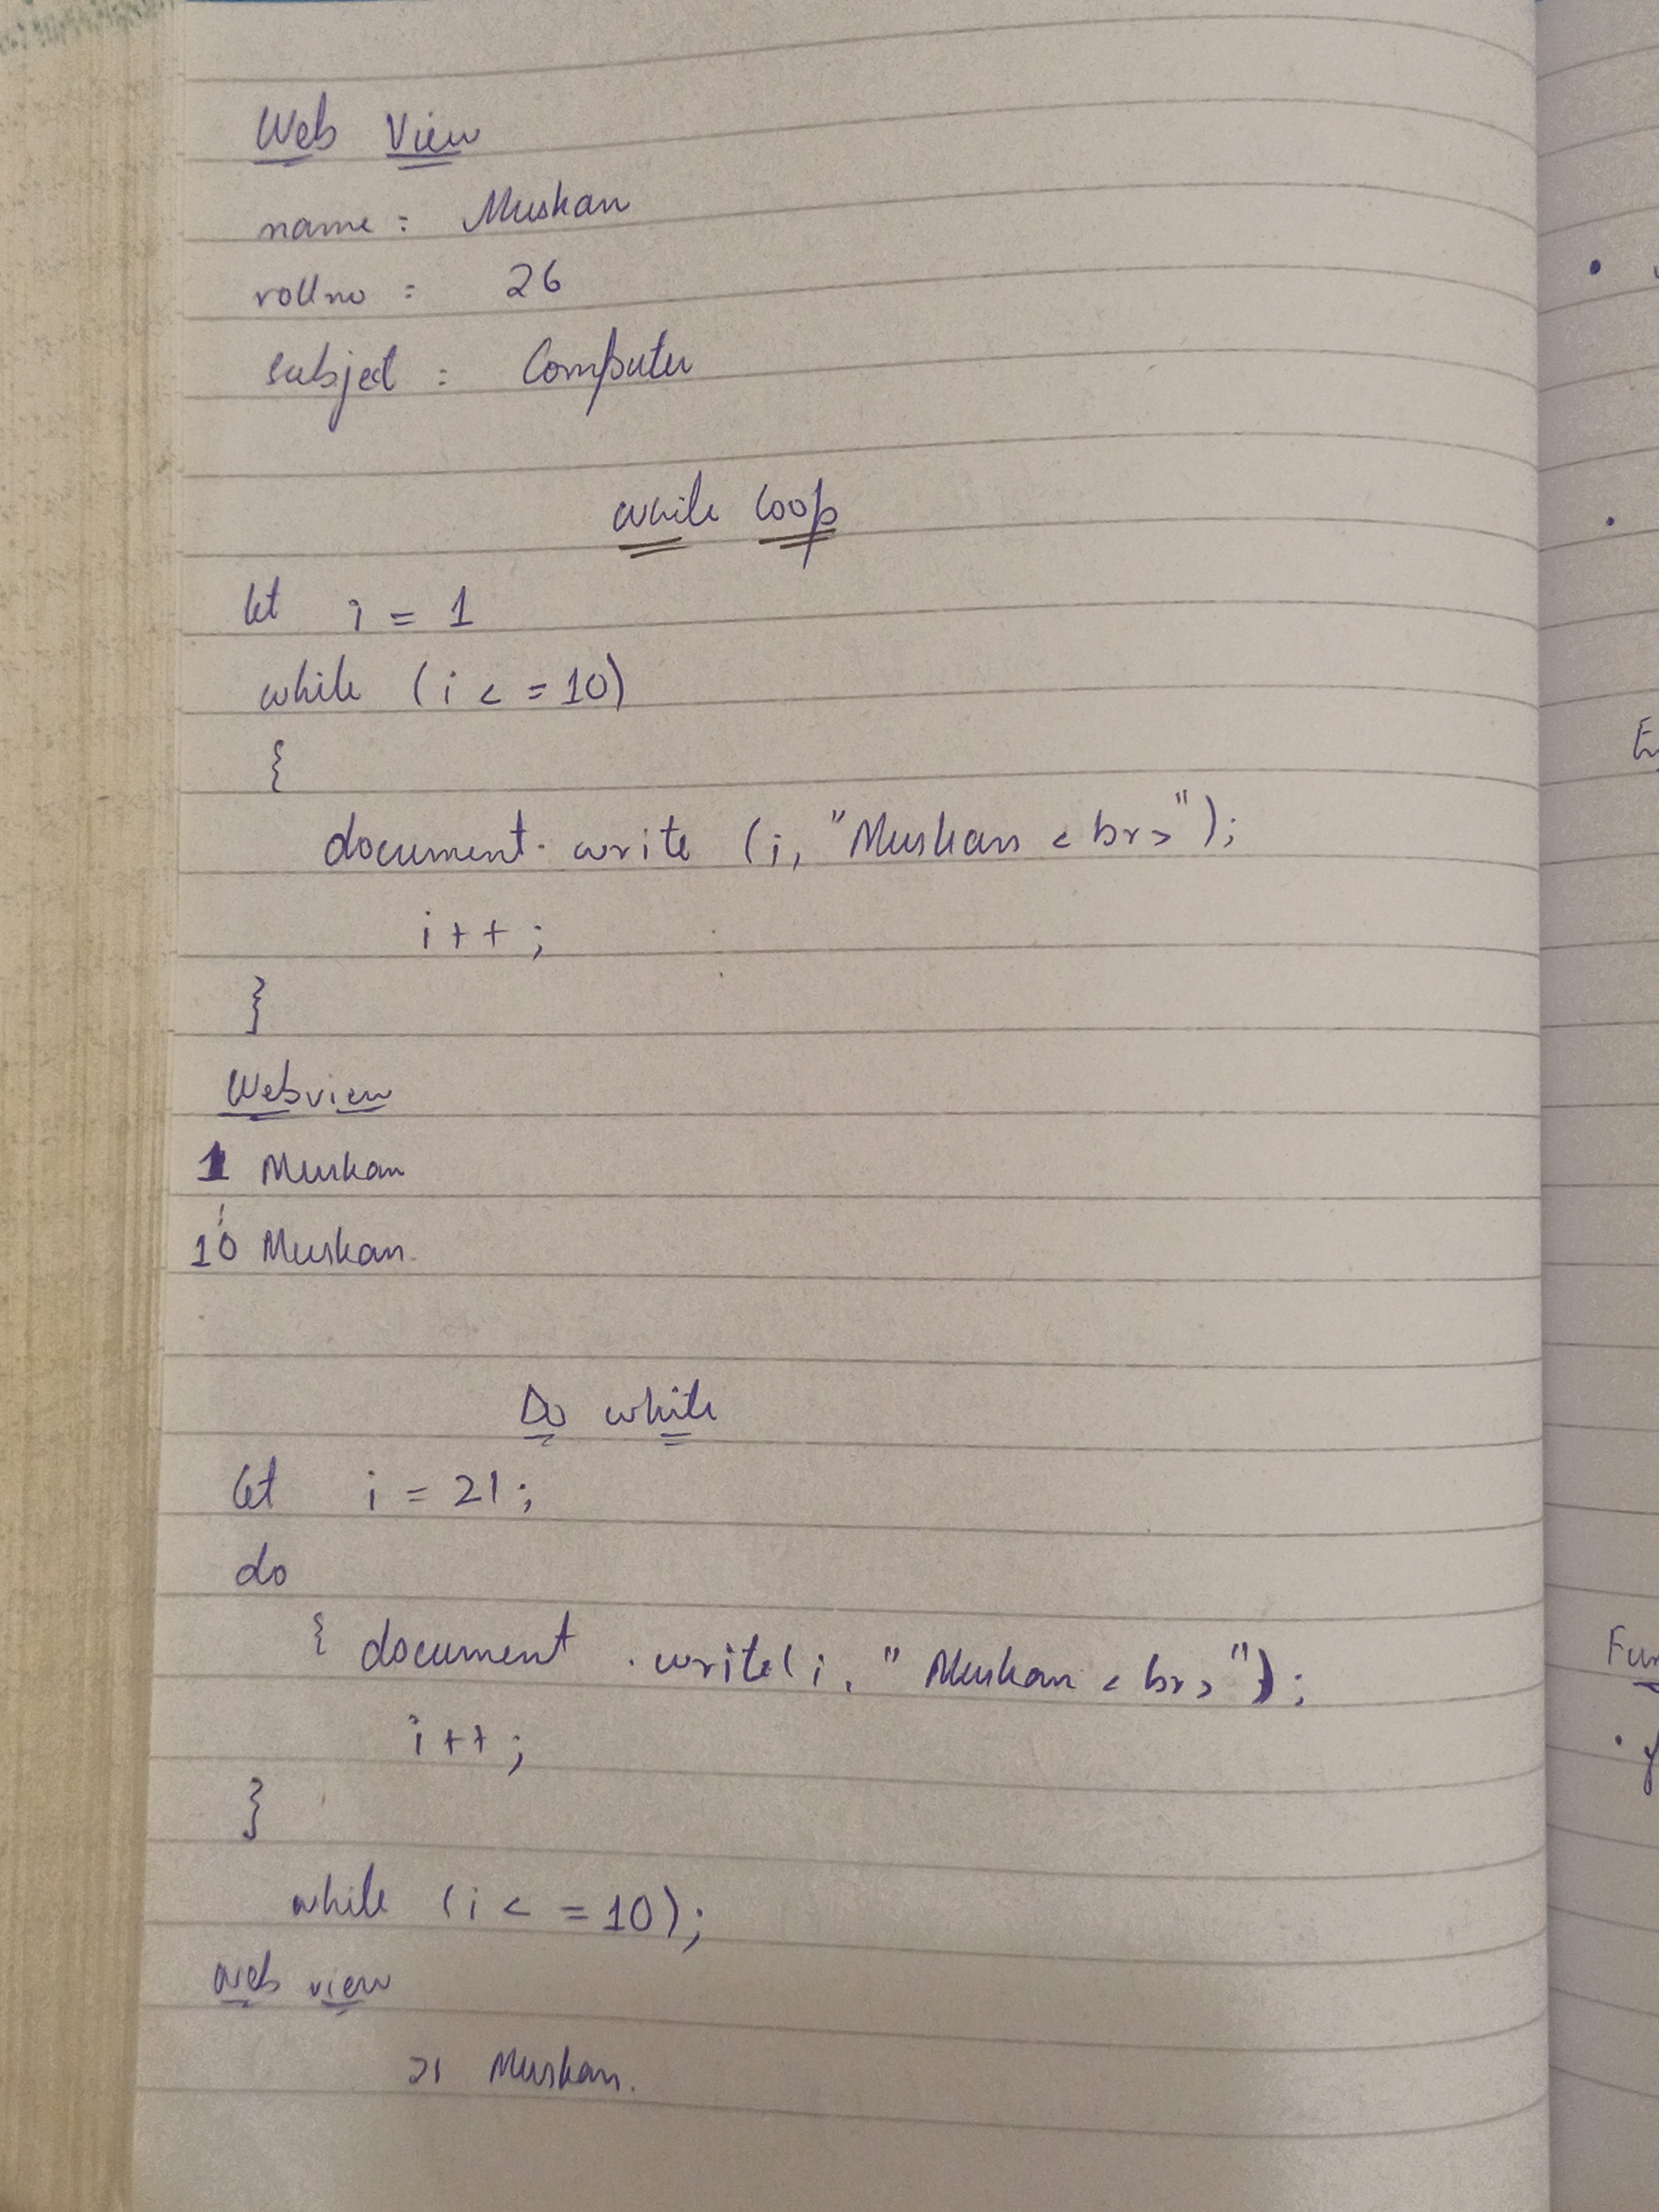 Web View
name : Muskan
rollno : 26
subject : Computer
while loop
let i = 1
while (i < = 10)
{
document. write (i, "Muskan < br >");
i++ ;
}
Webview
1 Muskan
10 Muskan.
Do while
let i = 21 ;
do
{ document .write(i, " Muskan < br >");
i++ ;
}
while (i < = 10);
web view
21 Muskan.
Fun